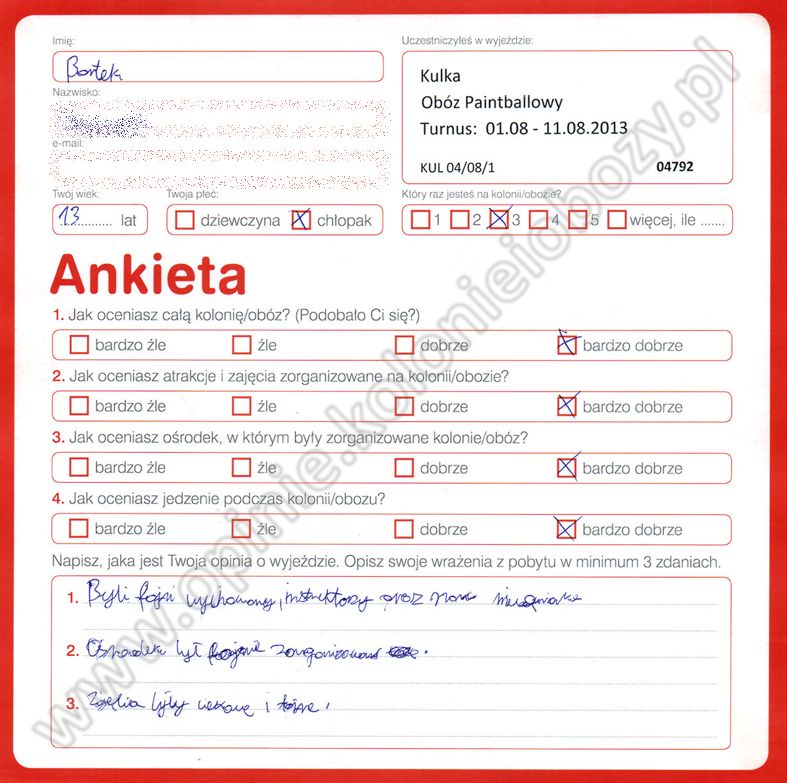 Imię:
Bartek
Uczestniczyłeś w wyjeździe:
Kulka
Obóz Paintballowy
Turnus: 01.08 - 11.08.2013
KUL 04/08/1 04792
Nazwisko:
e-mail:
Twój wiek:
13 lat
Twoja płeć:
dziewczyna chłopak
Który raz jesteś na kolonii/obozie?
1 2 3 4 5 więcej, ile .......
Ankieta
1. Jak oceniasz całą kolonię/obóz? (Podobało Ci się?)
bardzo źle źle dobrze bardzo dobrze
2. Jak oceniasz atrakcje i zajęcia zorganizowane na kolonii/obozie?
bardzo źle źle dobrze bardzo dobrze
3. Jak oceniasz ośrodek, w którym były zorganizowane kolonie/obóz?
bardzo źle źle dobrze bardzo dobrze
4. Jak oceniasz jedzenie podczas kolonii/obozu?
bardzo źle źle dobrze bardzo dobrze
Napisz, jaka jest Twoja opinia o wyjeździe. Opisz swoje wrażenia z pobytu w minimum 3 zdaniach.
1. Byli fajni wychowawcy, instruktorzy oraz
2. był fajnie
3. były ciekawe i
www.opinie.kolonieiobozy.pl